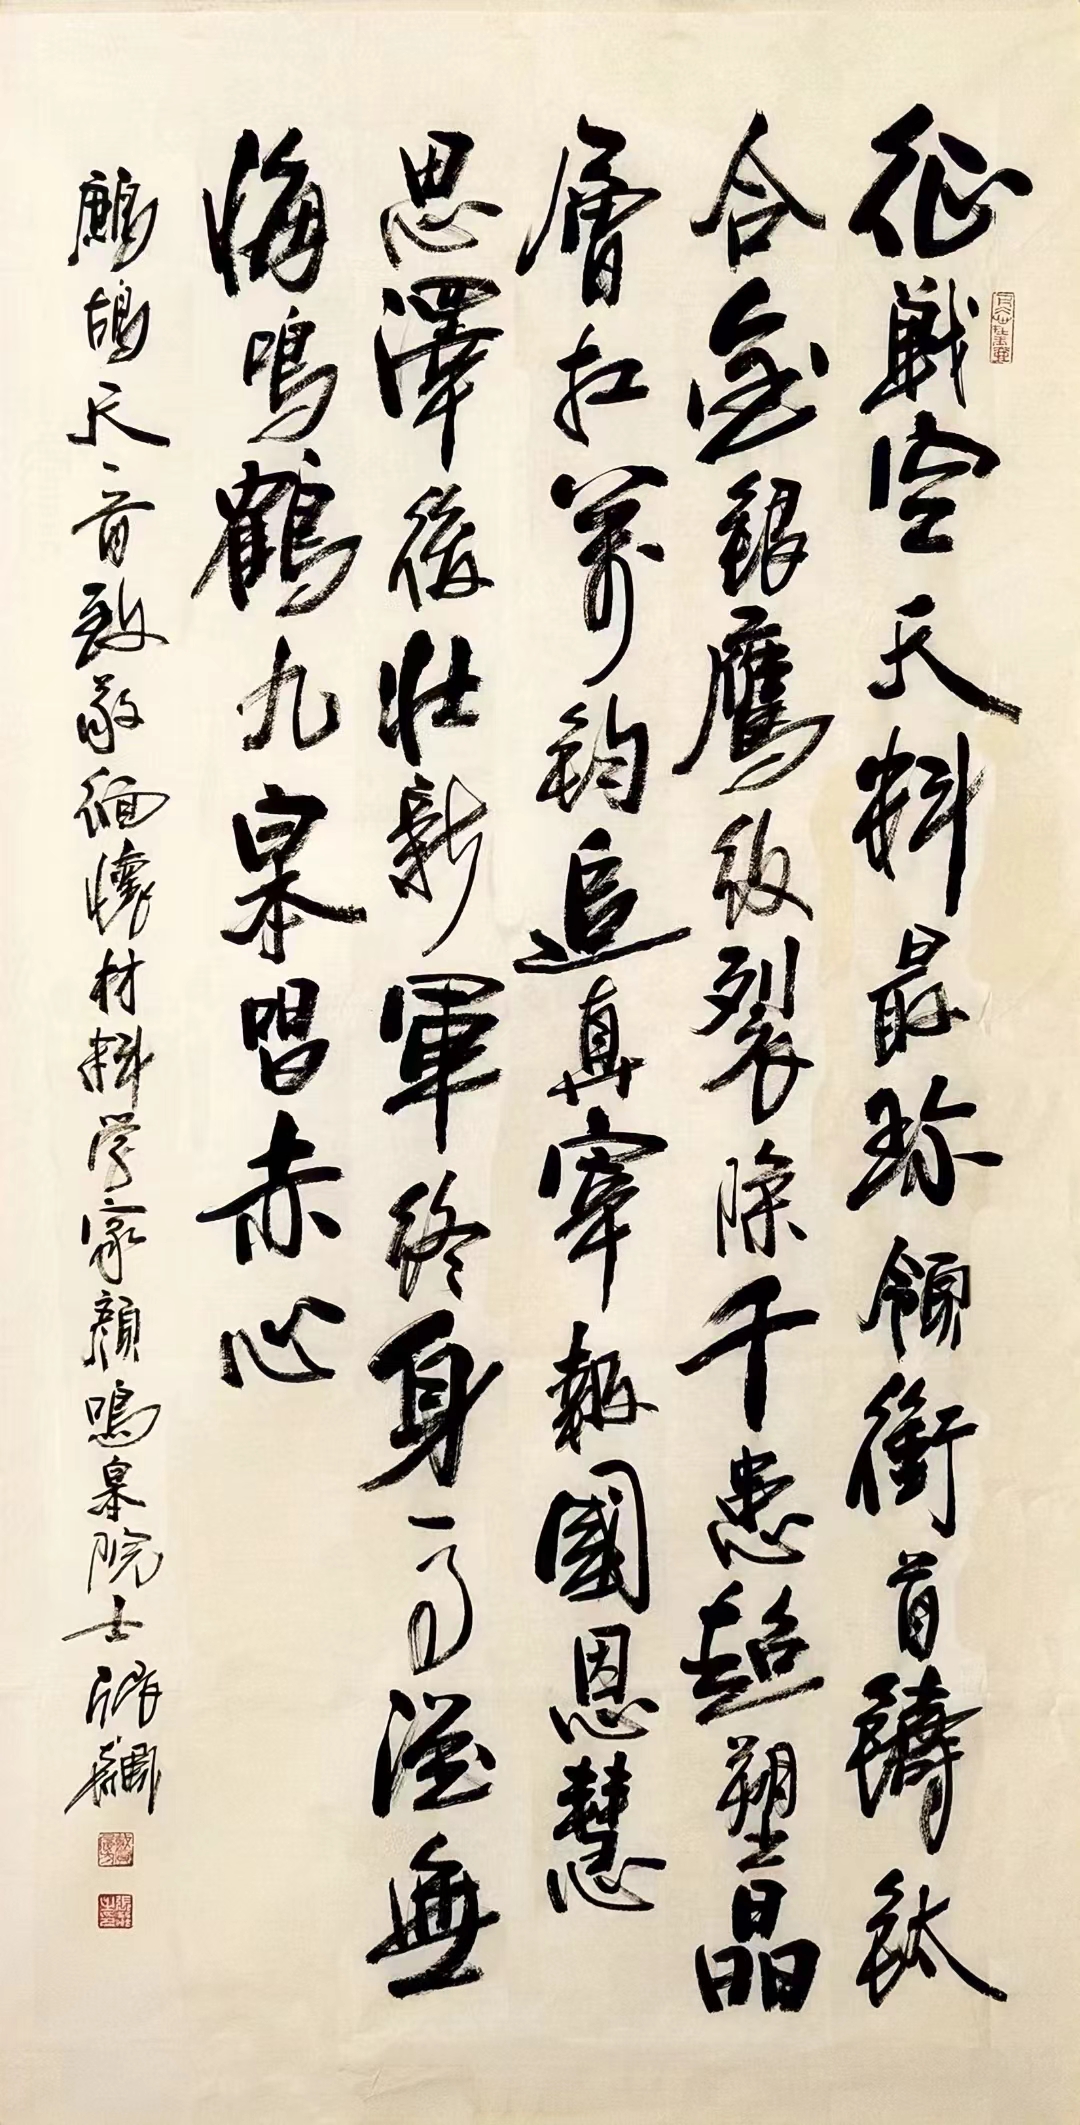 征戰空天料最珍領銜首鑄鈦
合金銀鷹纹裂除千患超塑晶
層扛萬鈞追真宰報國恩慧
思澤後壯新軍終身一事無
悔鳴鶴九皋唱赤心
鷓鴣天一首致敬緬懷材料学家顏鳴皋院士